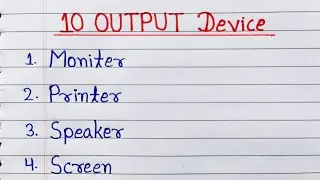 10 OUTPUT Device
1. Moniter
2. Printer
3. Speaker
4. Screen